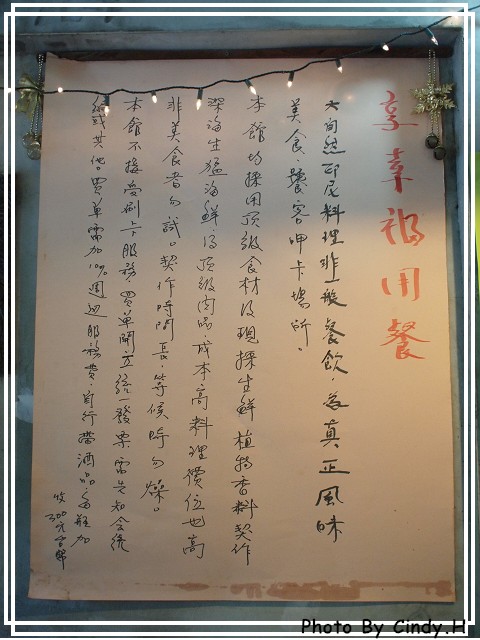 享幸福用餐
大自然印尼料理非一般餐飲，為真正風味
美食、饕客呷卡場所。
本館均採用頂級食材及現採生鮮植物香料製作
深海生猛海鮮，及頂級肉品成本高料理價位也高
非美食者勿試。製作時間長，等候時勿燥。
本館不接受刷卡服務，買單開立統一發票需告知含統
編或其他。買單需加10%週邊服務費，自行帶酒品每瓶加
收300元台幣
Photo By Cindy.H